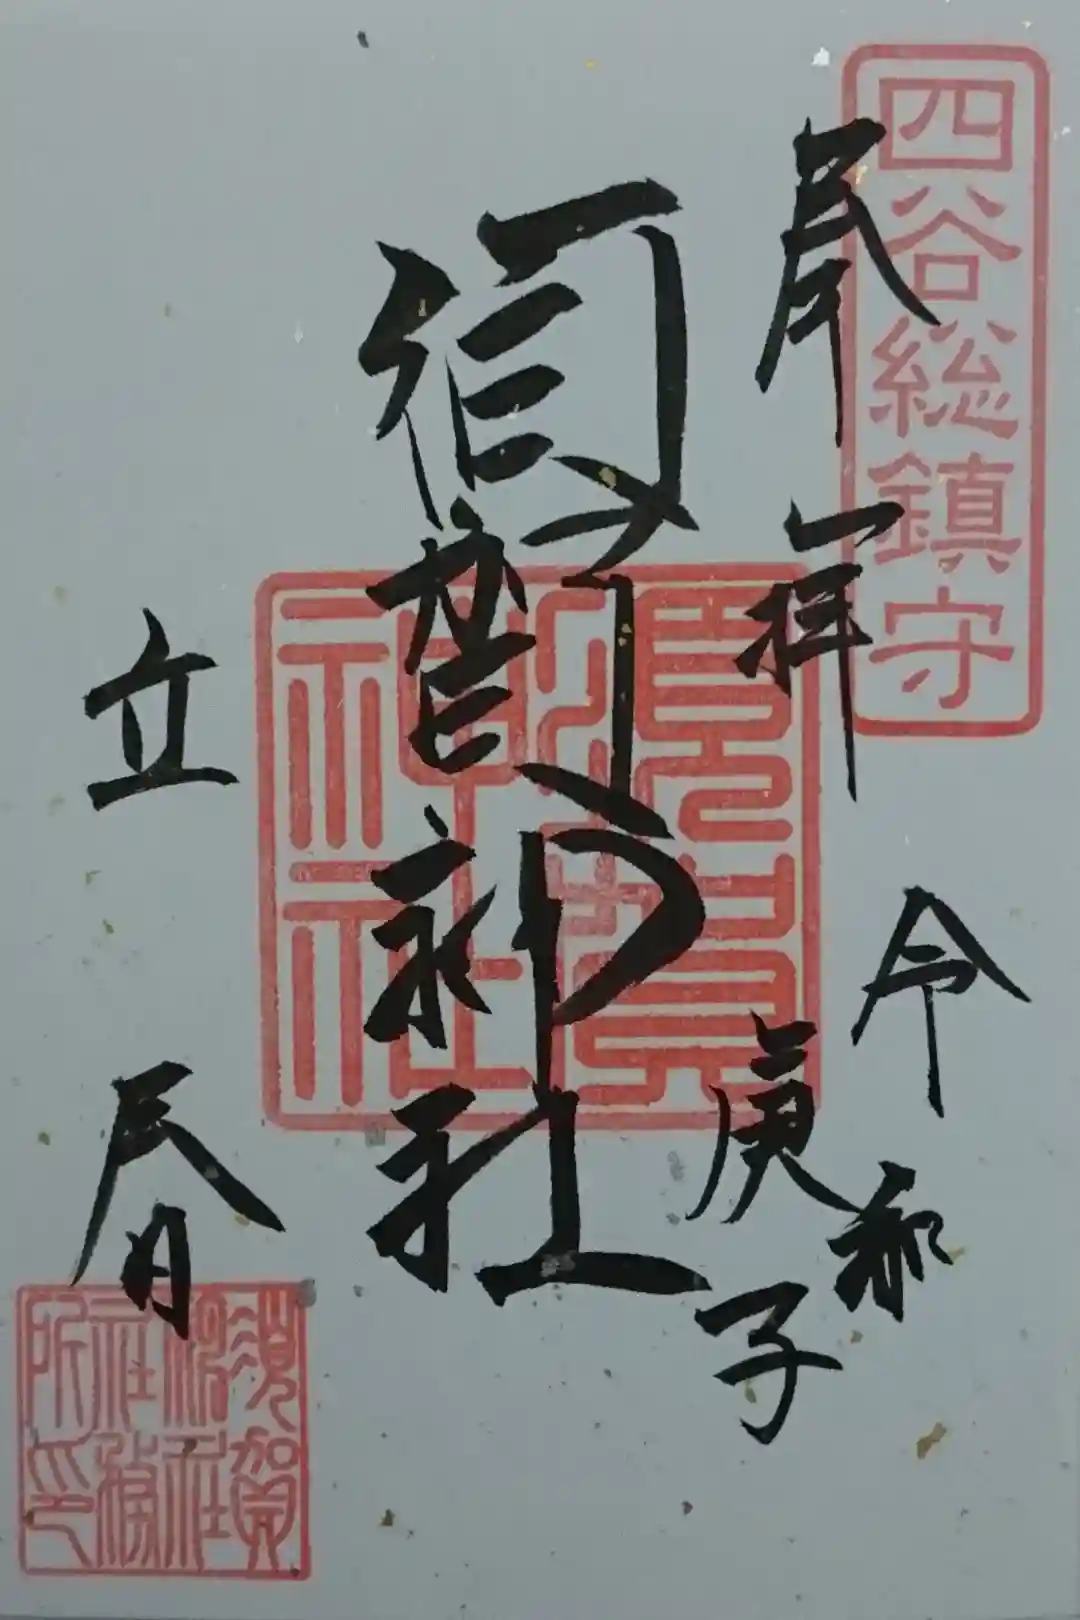 四谷総鎮守
奉拝
令和
庚子
須賀神社
須賀神社
立春
須賀神社社務所印